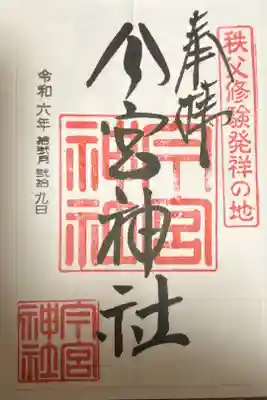 秩父修験発祥の地
奉拝
今宮神社
今宮
神社
令和六年 拾弐月 弐拾九日
今宮
神社